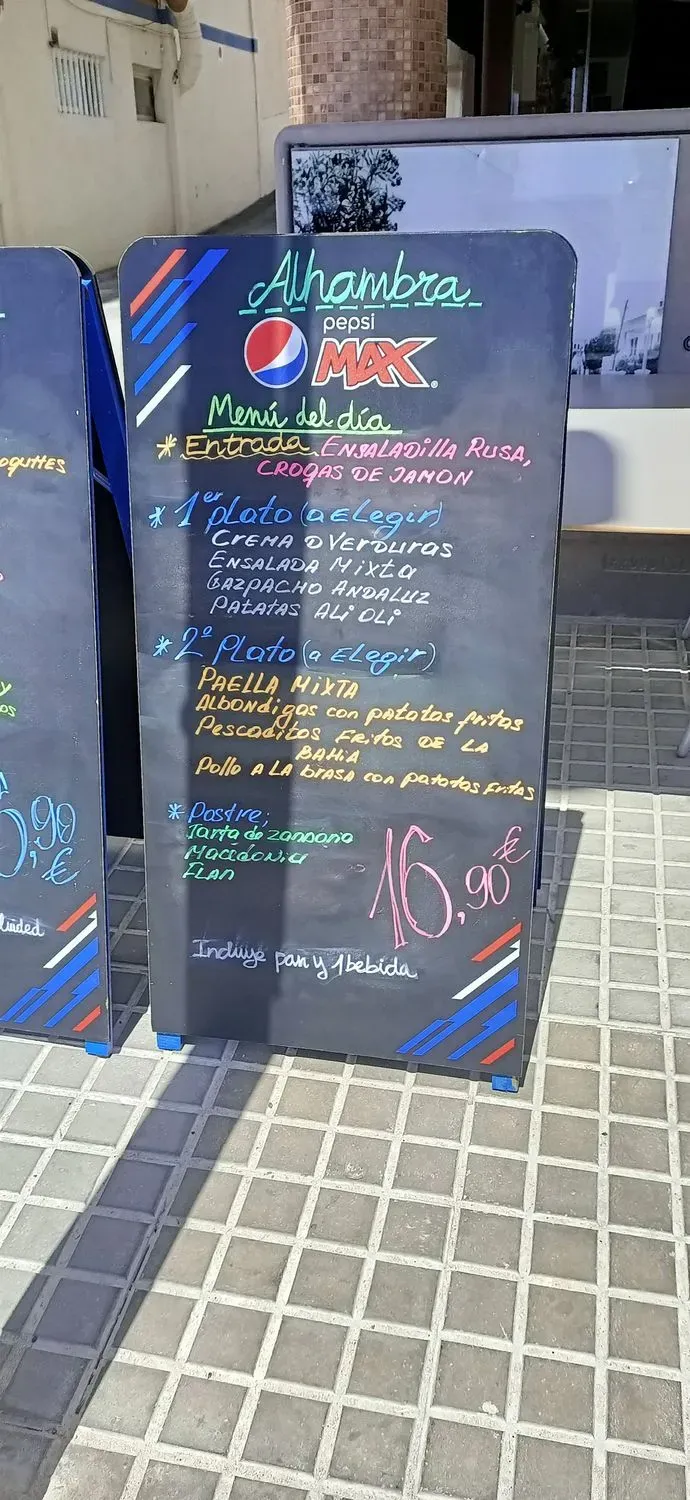 Alhambra
pepsi
MAX
Menú del día
* Entrada ENSALADILLA RUSA,
CROQAS DE JAMON
* 1er plato (a ELegir)
CREMA D VERDURAS
ENSALADA MIXTA
GAZPACHO ANDALUZ
PATATAS ALI OLI
* 2º PLATO (a ELegir)
PAELLA MIXTA
Albondigas con patatas fritas
Pescaditos FRITOS DE LA
BAHIA
Pollo A LA brasa con patatas fritas
* Postre;
Tarta de zanaoria
Macedonia
FLAN
16,90 €
Incluye pan y 1 bebida
,90
€